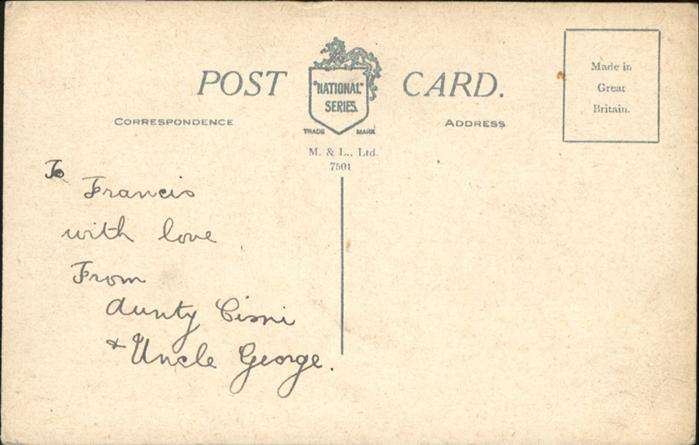 POST CARD.
"NATIONAL"
SERIES.
TRADE MARK
Made in
Great
Britain.
CORRESPONDENCE
ADDRESS
M. & L., Ltd.
7501
To
Francis
with love
From
Aunty
& Uncle George.